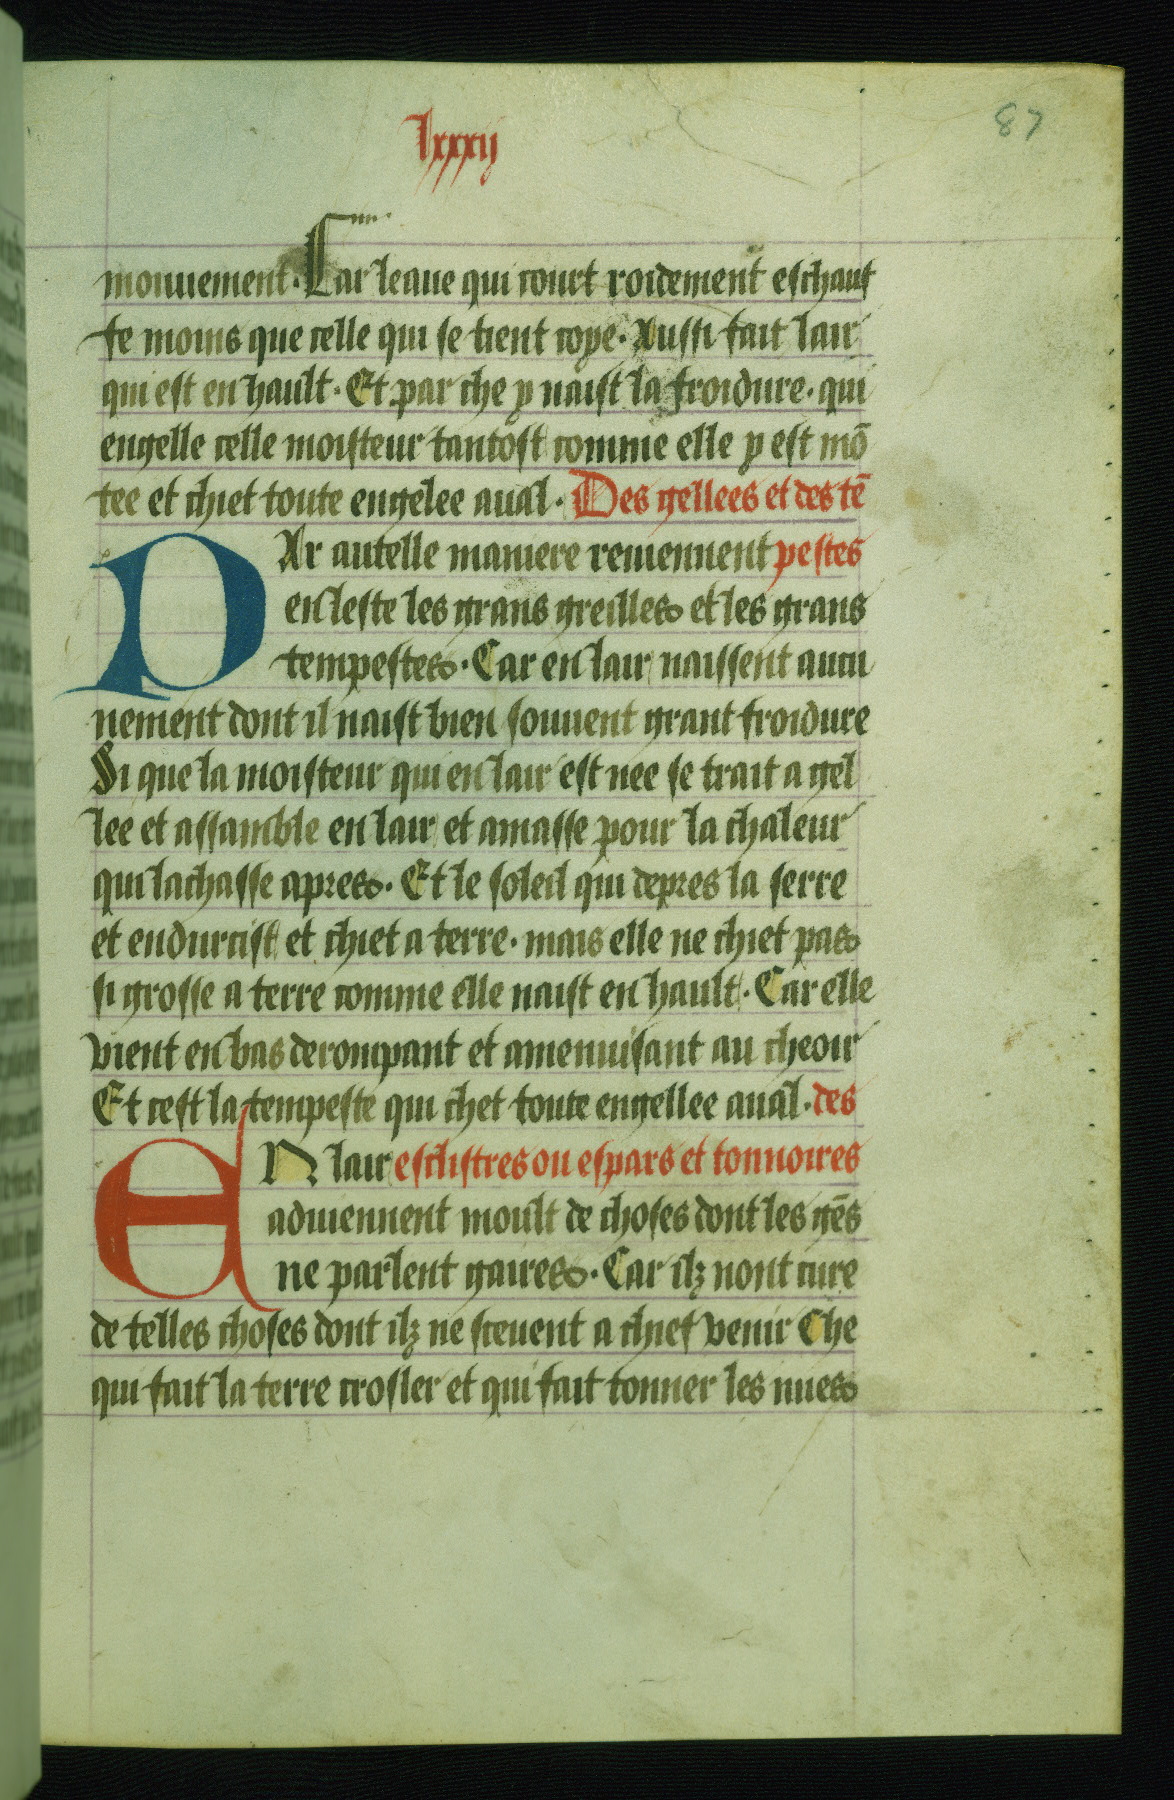 lxxxij
87
mouuement. Car leaue qui court roidement eschauf
fe moins que celle qui se tient coye. Aussi fait lair
qui est en hault. Et par che y naist la froidure. qui
engelle celle moisteur tantost comme elle y est mō
tee et chiet toute engelee aual. Des gellees et des tē
PAr autelle maniere reuiennent pestes
en leste les grans greilles et les grans
tempestes. Car en lair naissent aucu
nement dont il naist bien souuent grant froidure
Si que la moisteur qui en lair est nee se trait a gel
lee et assamble en lair et amasse pour la chaleur
qui lachasse apres. Et le soleil qui depres la serre
et endurcist et chiet a terre. mais elle ne chiet pas
si grosse a terre comme elle naist en hault. Car elle
vient en bas derompant et amenuisant au cheoir
Et cest la tempeste qui chet toute engellee aual. des
EN lair esclistres ou espars et tonnoires
aduiennent moult de choses dont les gēs
ne parlent gaires. Car ilz nont cure
de telles choses dont ilz ne sceuent a chief venir Che
qui fait la terre crosler et qui fait tonner les nues